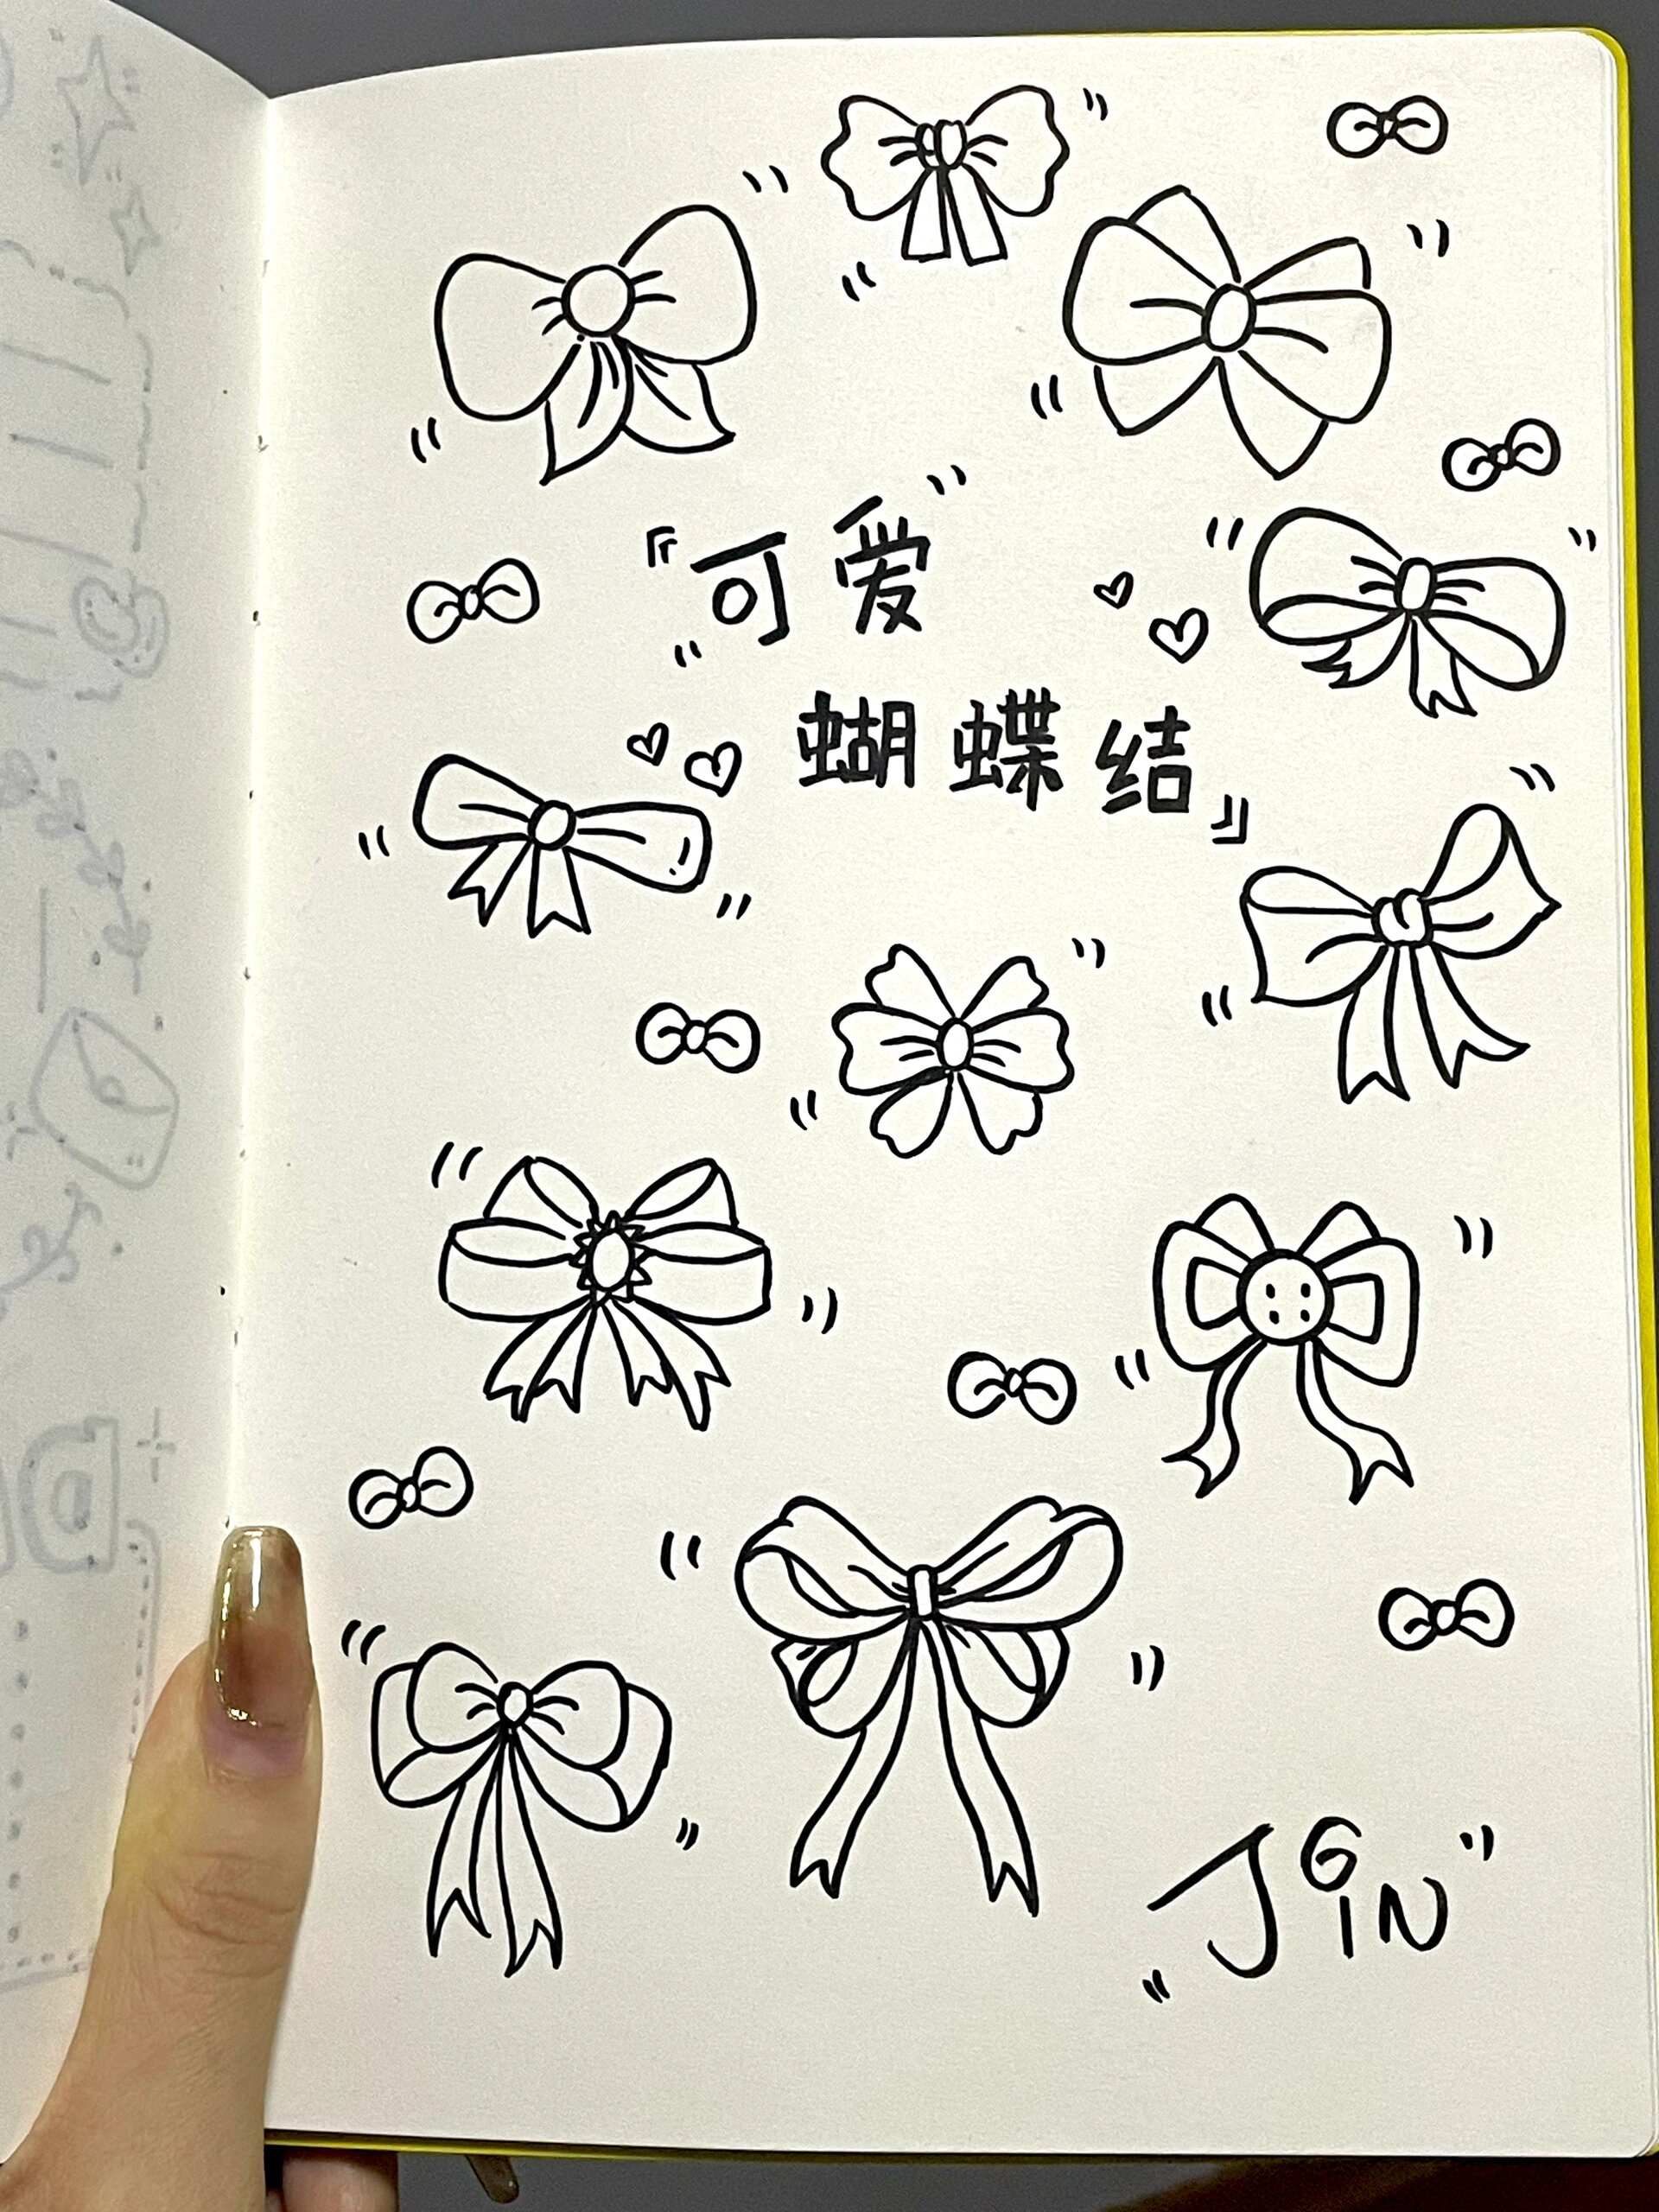 『可爱
蝴蝶结』
JGIN